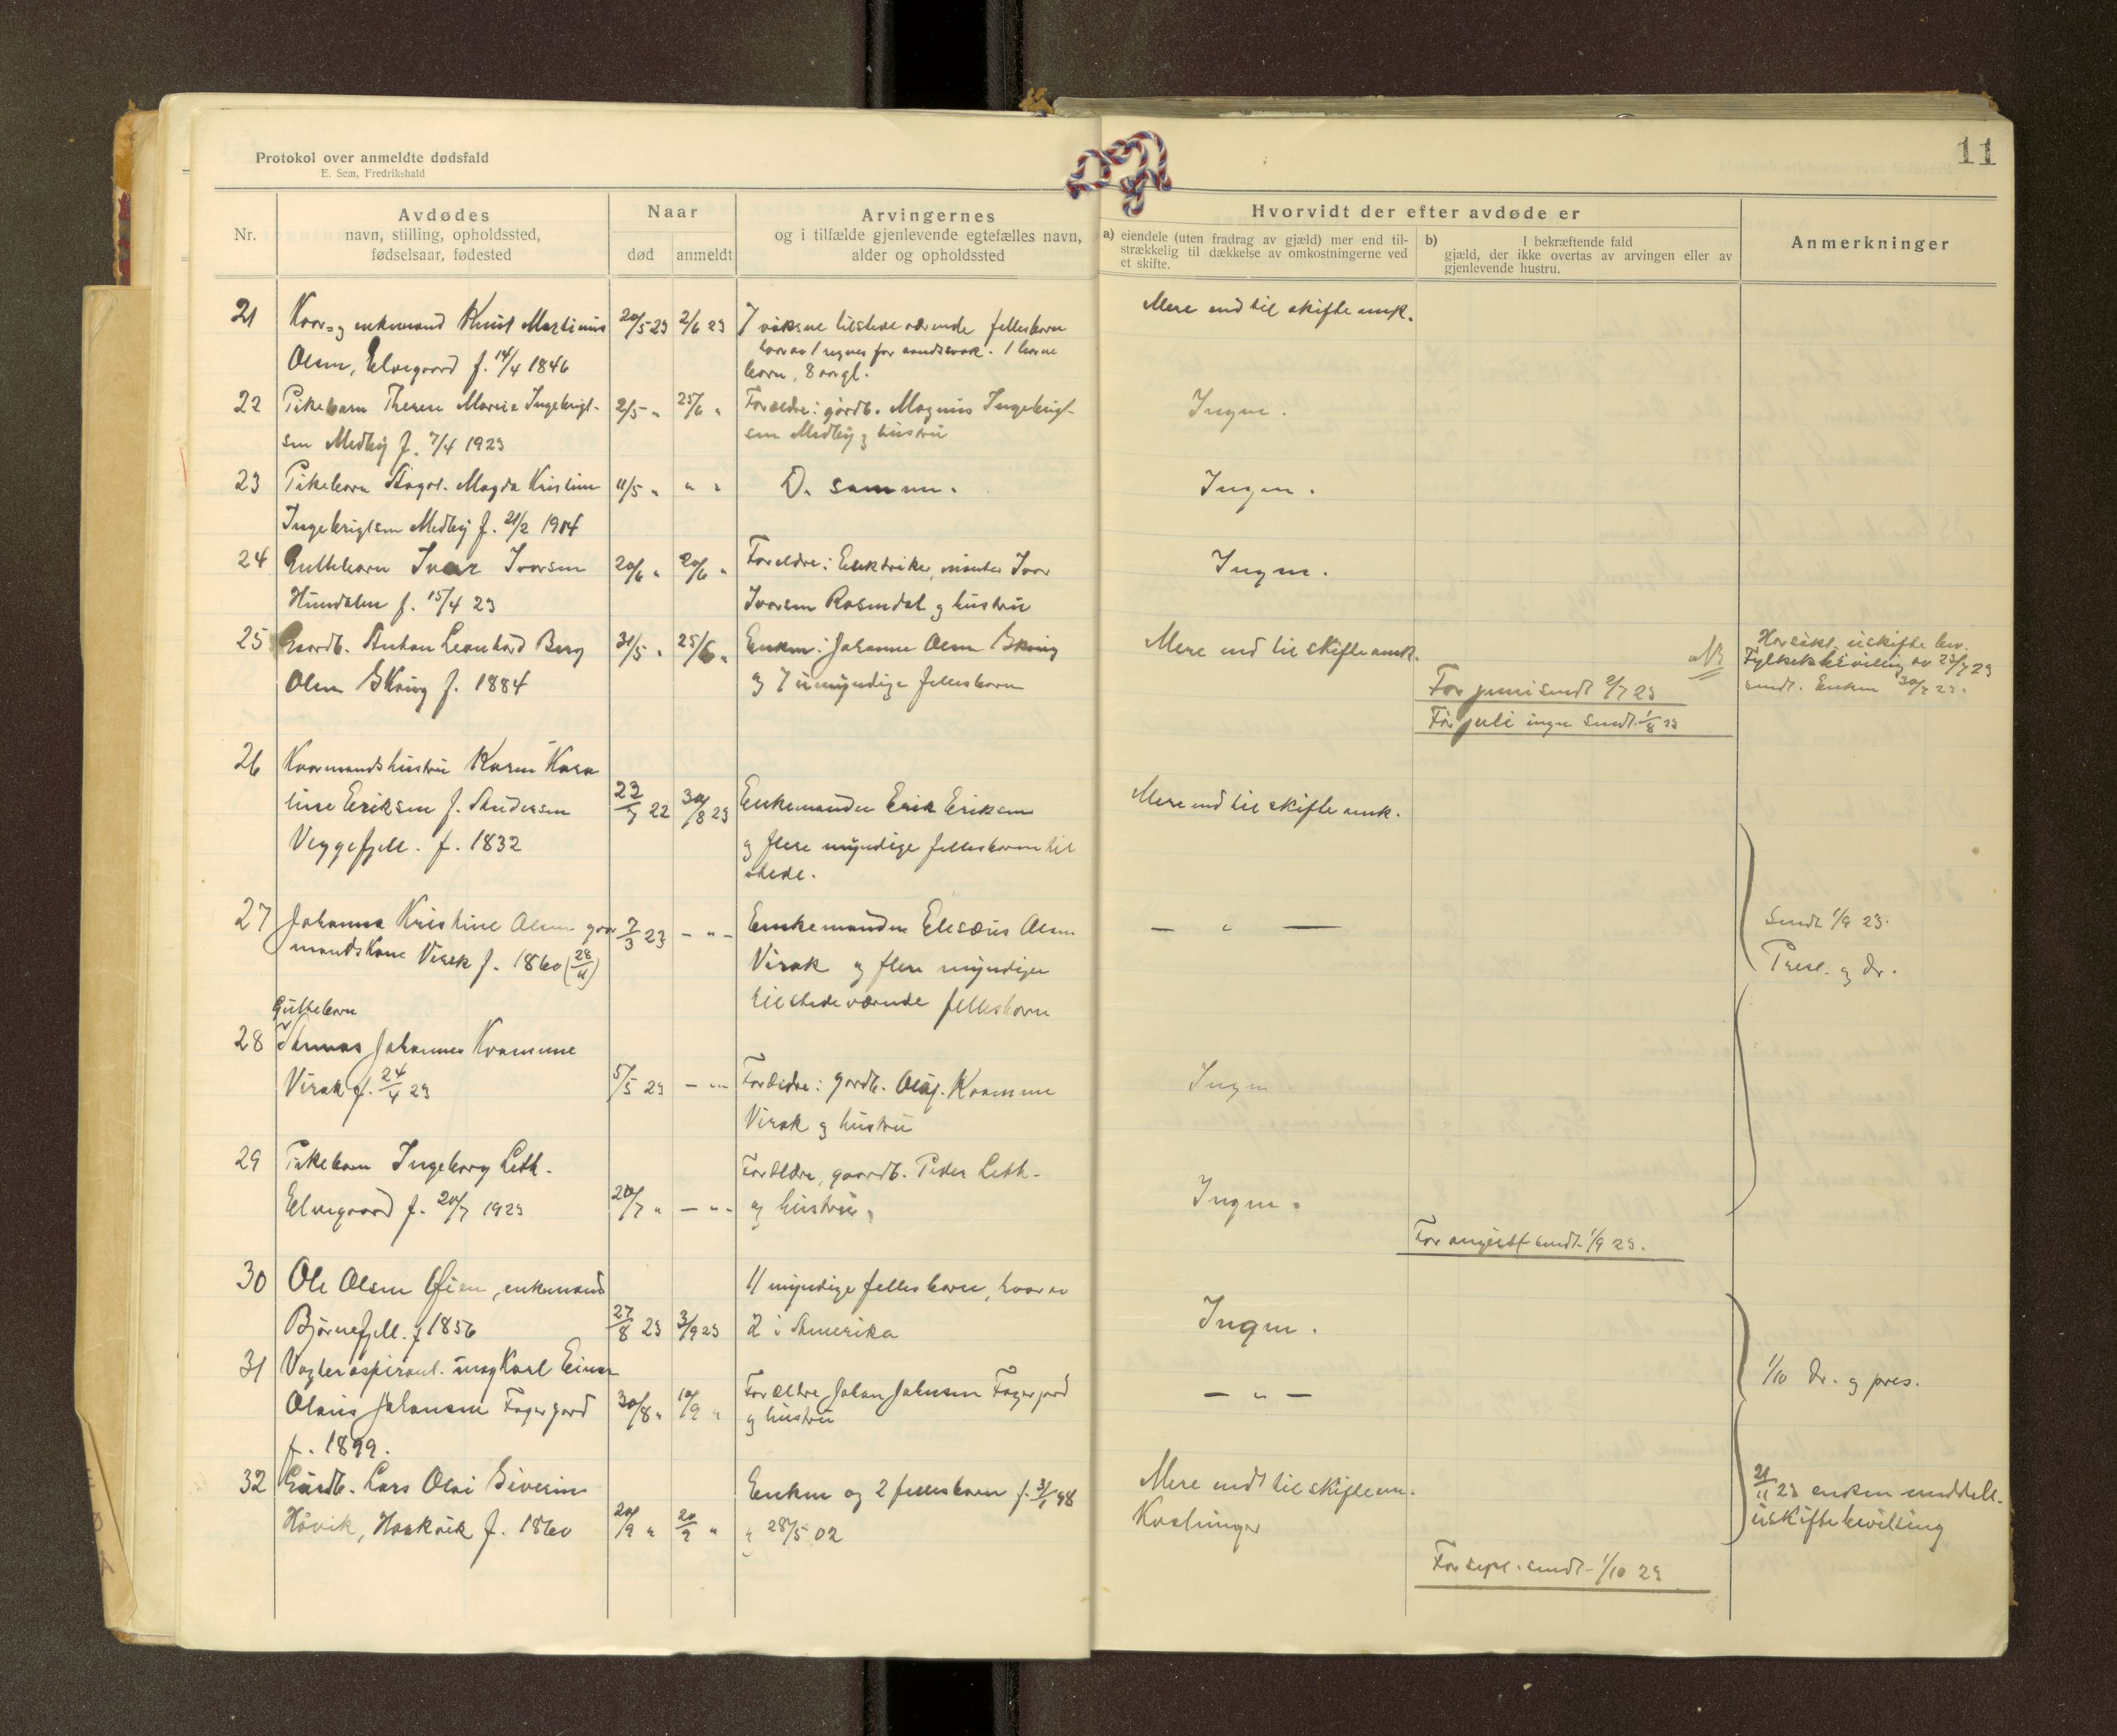 Protokol over anmeldte dødsfald
E. Sem, Fredrikshald
11
Nr.
Avdødes
navn, stilling, opholdssted,
fødselsaar, fødested
Naar
død
anmeldt
Arvingernes
og i tilfælde gjenlevende egtefælles navn,
alder og opholdssted
Hvorvidt der efter avdøde er
a) eiendele (uten fradrag av gjæld) mer end til-
strækkelig til dækkelse av omkostningerne ved
et skifte.
b) I bekræftende fald
gjæld, der ikke overtas av arvingen eller av
gjenlevende hustru.
Anmerkninger
21 Kaar- og enkemand Knut Martinus 20/5 23 2/6 23 7 voksne tilstedeværende fellesbarn Mere end til skifte omk.
Olsen, Elvegaard f. 14/4 1846 hvorav 1 regnes for aandssvak. 1 barne
barn, 8 aar gl.
22 Pikebarn Therese Marie Ingebrigt- 2/5 " 25/6 " Forældre: gårdb. Magnus Ingebrigt- Ingen.
sen Medby f. 7/4 1923 sen Medby og hustru
23 Pikebarn Magda Kristine 11/5 " " " De samme. Ingen.
Ingebrigtsen Medby f. 21/2 1914
24 Guttebarn Ivar Ivarsen 20/6 " 20/6 " Forældre: Elektriker, montør Ivar Ingen.
Hundalen f. 15/4 23 Ivarsen Rosendal og hustru
25 Gaardb. Anton Leonhard Berg 31/5 " 25/6 " Enken: Johanne Olsen Skoing Mere end til skifte omk. NB
Olsen Skoing f. 1884 og 7 umyndige fellesbarn
For juni sendt 2/7 23
For juli ingen sendt 1/8 23
Har søkt uskifte bev.
Fylkets bevilling av 23/7 23
sendt. Enken 30/7 23.
26 Kaarmandshustru Karen Karo
line Eriksen f. Andersen 23/7 22 30/8 23 Enkemanden Erik Eriksen Mere end til skifte omk.
Veggefjell. f. 1832 og flere myndige fellesbarn til
stede.
27 Johanna Kristine Olsen gaar 7/3 23 - " - Enkemanden Elisæus Olsen — " —
mandskone Virak f. 1860 (28/11) Virak og flere myndige
tilstedeværende fellesbarn
Sendt 1/9 23.
Presl. og dr.
Guttebarn
28 Johannes Kvamme
Virak f. 24/4 23 5/5 23 - " - Forældre: Gardb. Olaf Kvamme Ingen
Virak og hustru
29 Pikebarn Ingeborg Leth- Forældre, gaardb. Peder Leth-
Elvegaard f. 20/7 1923 20/7 " - " - og hustru. Ingen.
For august sendt 1/9 23.
30 Ole Olsen Øien, enkemand 11 myndige fellesbarn, hvorav
Bjørnefjell. f 1856 27/8 23 3/9 23 2 i Amerika Ingen.
31 Vogteraspirant. ung Karl Einar
Olaus Johansen Fagerjord 30/8 " 10/9 " Forældre Johan Johansen Fagerjord — " —
f. 1899. og hustru
1/10 Dr. og pres.
32 Gårdb. Lars Olai Siverin Enken og 2 fellesbarn f. 3/1 98 Mere end til skifteom.
Håvik, Haakvik f. 1860 20/9 " 20/9 " " 28/5 02 kostninger
21/11 23 enken meddelt.
uskiftebevilling
For sept. sendt 1/10 23